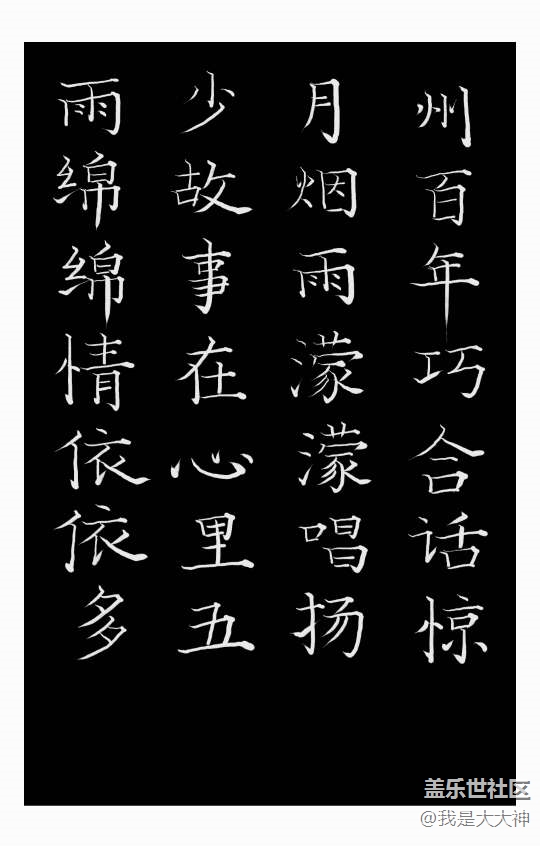 雨绵绵情依依多
少故事在心里五
月烟雨濛濛唱扬
州百年巧合话惊
盖乐世社区
@我是大大神